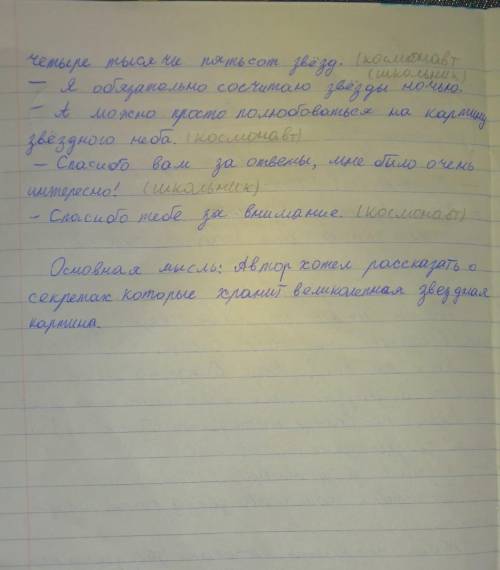 четыре тысячи пятьсот звёзд. (космонавт
(школьник)
– Я обязательно сосчитаю звёзды ночью.
– А можно просто полюбоваться на картину
звёздного неба. (космонавт)
– Спасибо вам за ответы, мне было очень
интересно! (школьник)
– Спасибо тебе за внимание. (космонавт)
Основная мысль: Автор хотел рассказать о
секретах которые хранит великолепная звездная
картина.